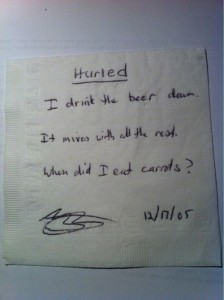 Hurled
I drink the beer down.
It mixes with all the rest.
When did I eat carrots?
12/17/05